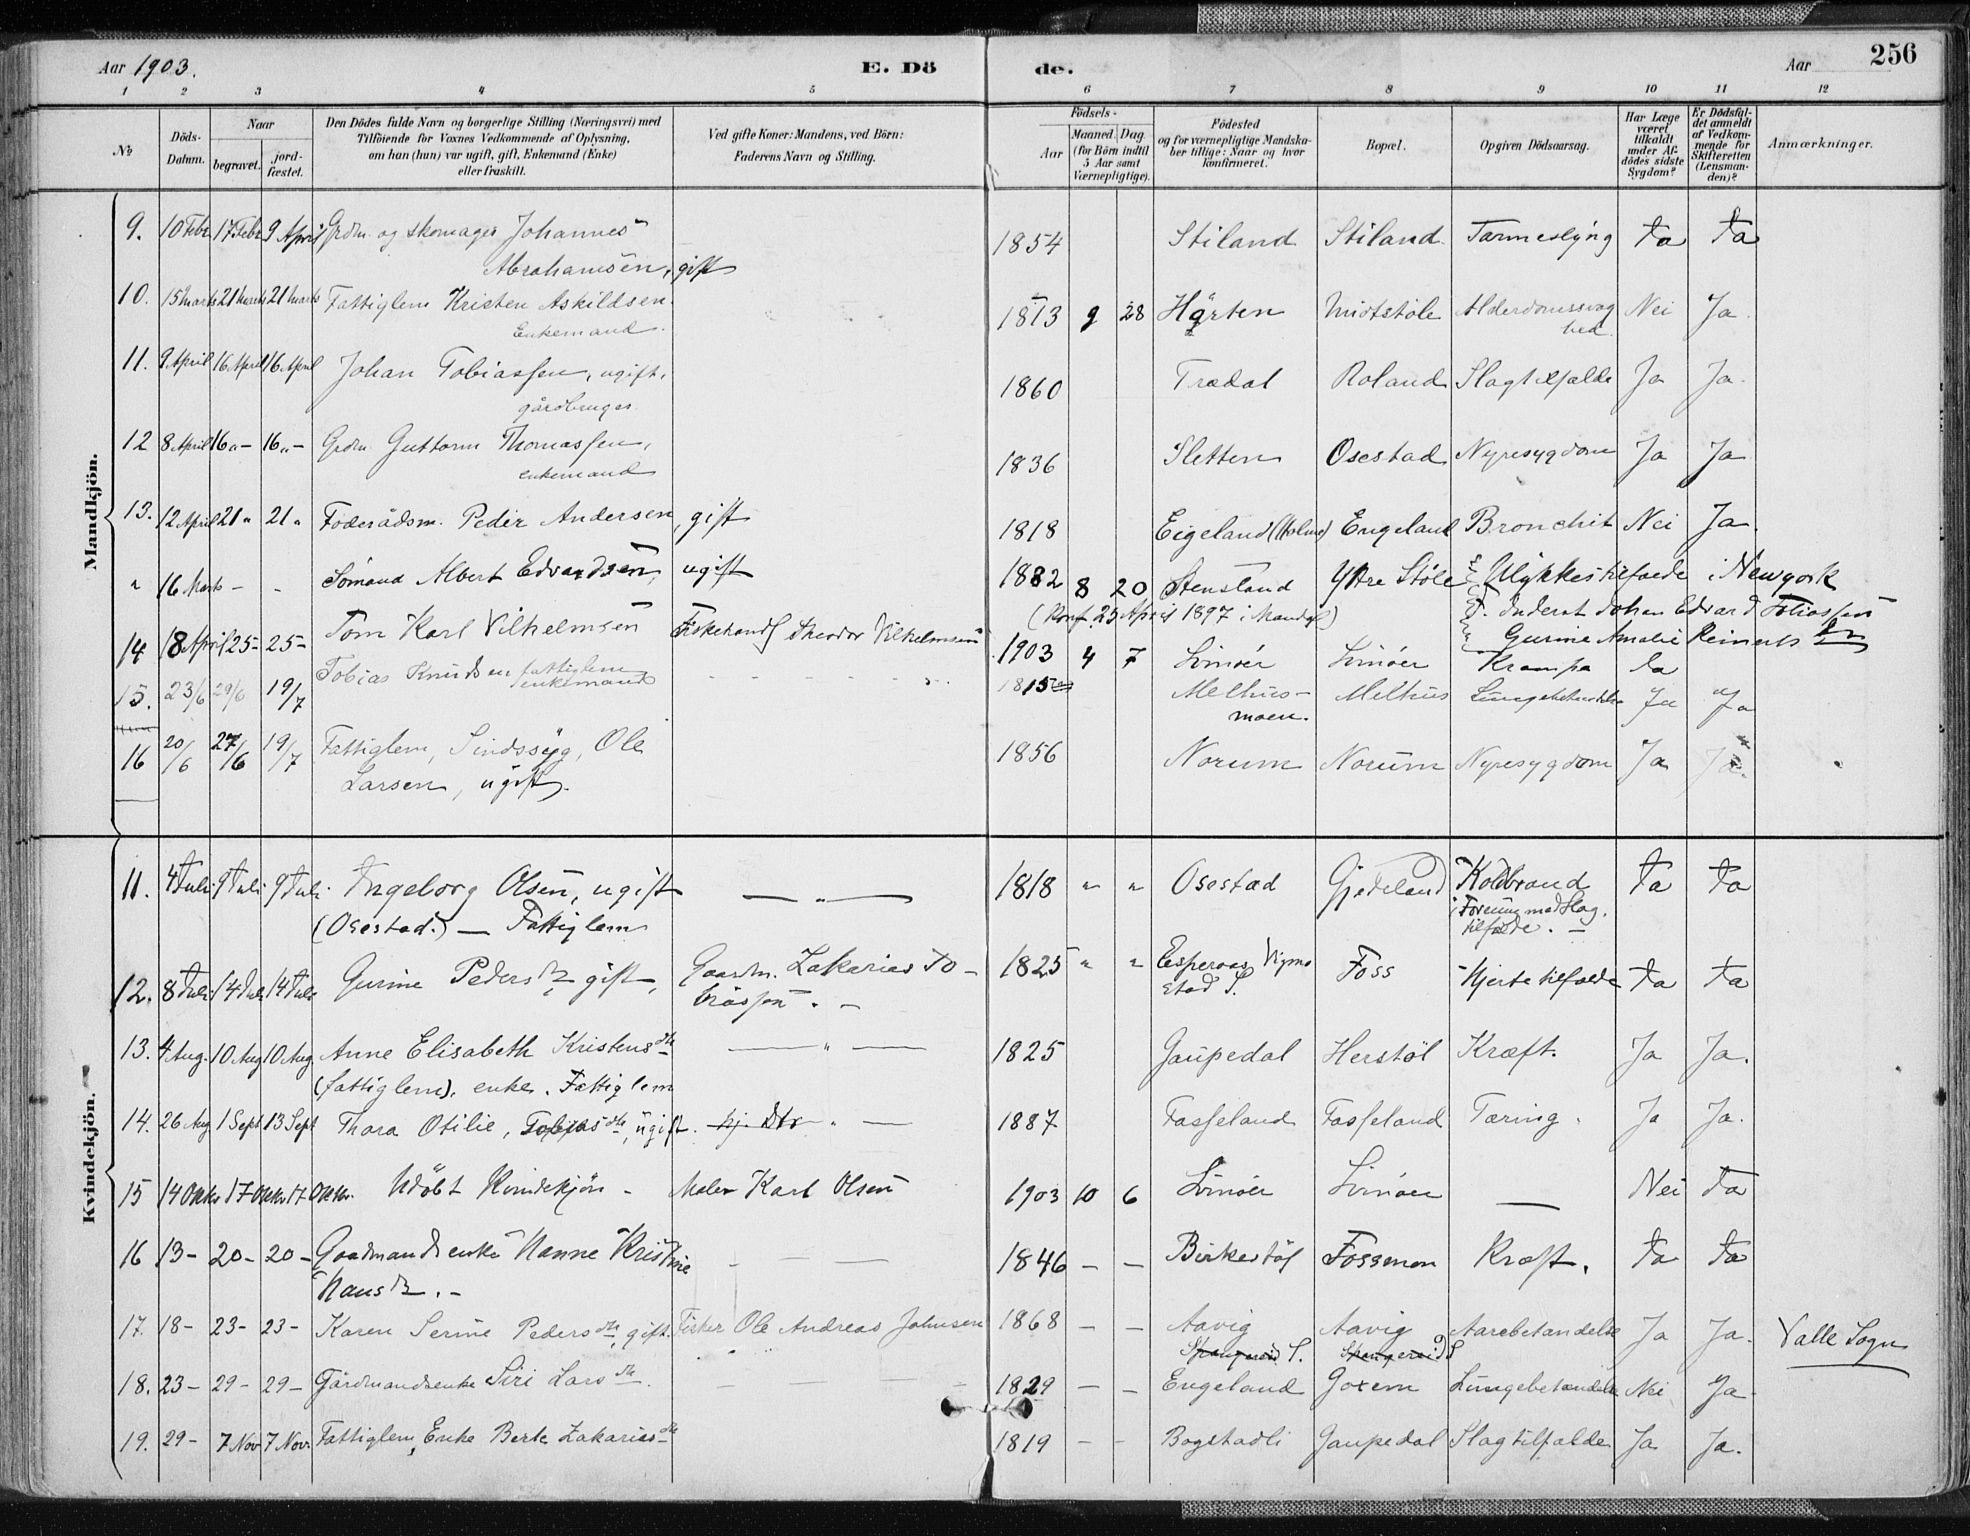 Aar 1903. E. Dö de. Aar 256
1 2 3 4 5 6 7 8 9 10 11 12
№ Döds-Datum. Naar begravet. jordfæstet. Den Dödes fulde Navn og borgerlige Stilling (Næringsvei) med Tilföiende for Voxnes Vedkommende af Oplysning, om han (hun) var ugift, gift, Enkemand (Enke) eller fraskilt. Ved gifte Koner: Mandens, ved Börn: Faderens Navn og Stilling. Födsels- Aar Maaned. Dag. (for Börn indtil 5 Aar samt Værnepligtige). Födested og for værnepligtige Mandskaber tillige: Naar og hvor konfirmeret. Bopæl. Opgiven Dödsaarsag. Har Læge været tilkaldt under Afdödes sidste Sygdom? Er Dödsfaldet anmeldt af Vedkommende for Skifteretten (Lensmanden)? Anmærkninger.
Mandkjön.
9. 10 Febr 17 Febr 9 April Grdm. og skomager Johannes 1854 Stiland Stiland Tarmeslyng Ja Ja
Abrahamsen, gift
10. 15 Marts 21 Marts 21 Marts Fattiglem Kristen Askildsen 1813 9 28 Hårten Midtstöle Alderdomssvag Nei Ja
Enkemand. hed.
11. 9 April 16 April 16 April Johan Tobiassen, ugift, 1860 Trædal Roland Slagtilfælde Ja Ja.
gårdbruger
12 8 April 16 „ – 16 „ – Grdm. Guttorm Thomassen, 1836 Sletten Osestad Nyresygdom Ja Ja
enkemand
13. 12 April 21 „ 21 „ Föderådsm. Peder Andersen, gift 1818 Eigeland (Holme) Engeland Bronchit Nei Ja
„ 16 Marts – - Sömand Albert Edvardsen, ugift 1882 8 20 Stensland Ytre Stöle Ulykkestilfælde i Newyork
(Konf. 25 April 1897 i Mandal) Johan Edvard
Gurine Amalie Reinerts
14 18 April 25 – 25 – Tom Karl Vilhelmsen Fiskehandl Theodor Vilhelmsen 1903 4 7 Svinöer Svinöer Krampe Ja
15. 23/6 29/6 19/7 Tobias Knudsen fattiglem enkemand 1815 Melhus- Melhus Ja Ja
moen.
16 20/6 27/6 19/7 Fattiglem, Sindssyg, Ole 1856 Norum Norum Nyresygdom Ja Ja.
Larsen, ugift.
Kvindekjön.
11. 4 Juli 9 Juli 9 Juli Ingeborg Olsen, ugift — „ — 1818 „ „ Osestad Gjedeland Koldbrand Ja Ja
(Osestad.) — Fattiglem i Forening med Slag.
tilfælde. –
12. 8 Juli 14 Juli 14 Juli Gurine Pedersdtr gift, Gaardm. Zakarias To- 1825 „ „ Foss Hjertetilfælde Ja Ja
biassen. –
13. 4 Aug. 10 Aug 10 Aug Anne Elisabeth Kristensdtr — „ — 1825 Gaupedal Herstöl Kræft. Ja Ja.
(fattiglem), enke. Fattiglem
14. 26 Aug 1 Sept 13 Sept Thora Otilie, Tobiasdtr, ugift. „ — 1887 Fasseland Fasseland Tæring. Ja Ja.
15 14 Oktbr 17 Oktbr 17 Oktbr. Udöbt Kvindekjön – Maler Karl Olsen 1903 10 6 Svinöer Svinöer — Nei Ja
16 13 – 20 – 20 – Gaardmandsenke Hanne Kristine – — 1846 – – Birkestöl Fossmoen Kræft. Ja Ja
Hansdtr. –
17. 18 – 23 – 23 – Karen Serine Pedersdtr, gift. Fisker Ole Andreas Johnsen 1868 – – Aavig Aavig Aarebetændelse Ja Ja. Valle Sogn
Spangereid S. Spangereid S
18. 23 – 29 – 29 – Gårdmandsenke Siri Larsdtr. 1829 – – Engeland Goxem Lungebetændelse Nei Ja
19. 29 – 7 Nov 7 Nov. Fattiglem, Enke Berte Zakariasdtr 1819 – – Bogstadli Gaupedal Slagtilfælde Ja Ja.